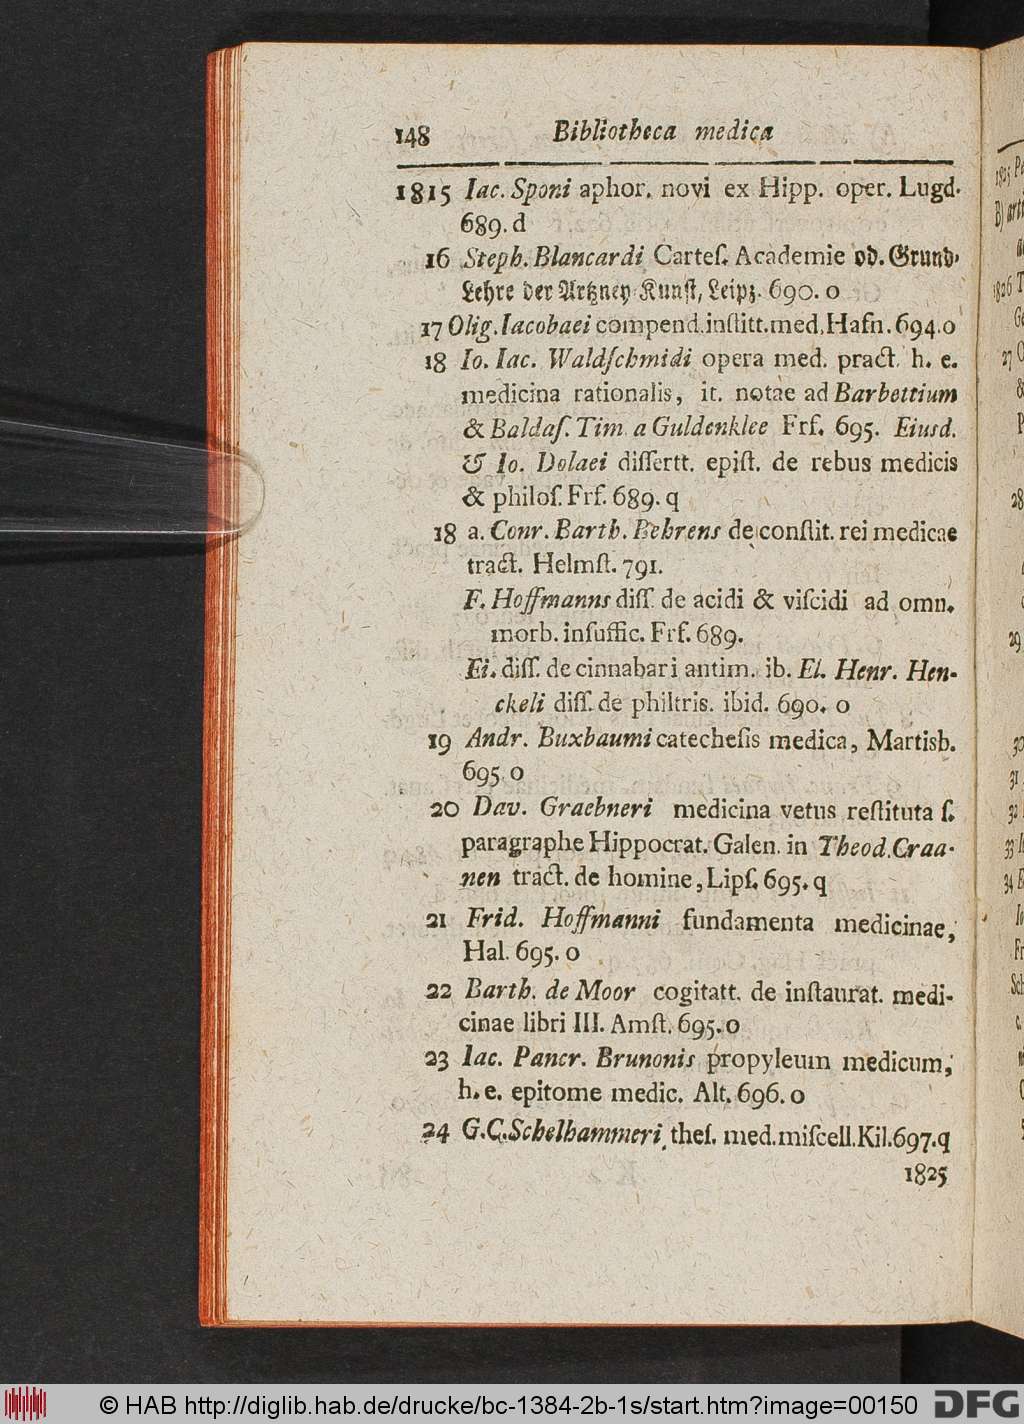 148 Bibliotheca medica
1815 Iac. Sponi aphor. novi ex Hipp. oper. Lugd.
689. d
16 Steph. Blancardi Carteſ. Academie od. Grund-
Lehre der Artzney-Kunſt, Leipz. 690. o
17 Olig. Iacobaei compend. inſtitt. med. Hafn. 694. o
18 Io. Iac. Waldſchmidi opera med. pract. h. e.
medicina rationalis, it. notae ad Barbettium
& Baldaſ. Tim. a Guldenklee Frf. 695. Eiusd.
& Io. Dolaei diſſertt. epiſt. de rebus medicis
& philoſ. Frf. 689. q
18 a. Conr. Barth. Behrens de conſtit. rei medicae
tract. Helmſt. 791.
F. Hoffmanns diſſ. de acidi & viſcidi ad omn.
morb. inſuffic. Frf. 689.
Ei. diſſ. de cinnabari antim. ib. El. Henr. Hen-
ckeli diſſ. de philtris. ibid. 690. o
19 Andr. Buxbaumi catecheſis medica, Martisb.
695. o
20 Dav. Graebneri medicina vetus reſtituta ſ.
paragraphe Hippocrat. Galen. in Theod. Craa-
nen tract. de homine, Lipſ. 695. q
21 Frid. Hoffmanni fundamenta medicinae,
Hal. 695. o
22 Barth. de Moor cogitatt. de inſtaurat. medi-
cinae libri III. Amſt. 695. o
23 Iac. Pancr. Brunonis propyleum medicum,
h. e. epitome medic. Alt. 696. o
24 G. C. Schelhammeri theſ. med. miſcell. Kil. 697. q
1825
© HAB http://diglib.hab.de/drucke/bc-1384-2b-1s/start.htm?image=00150 DFG